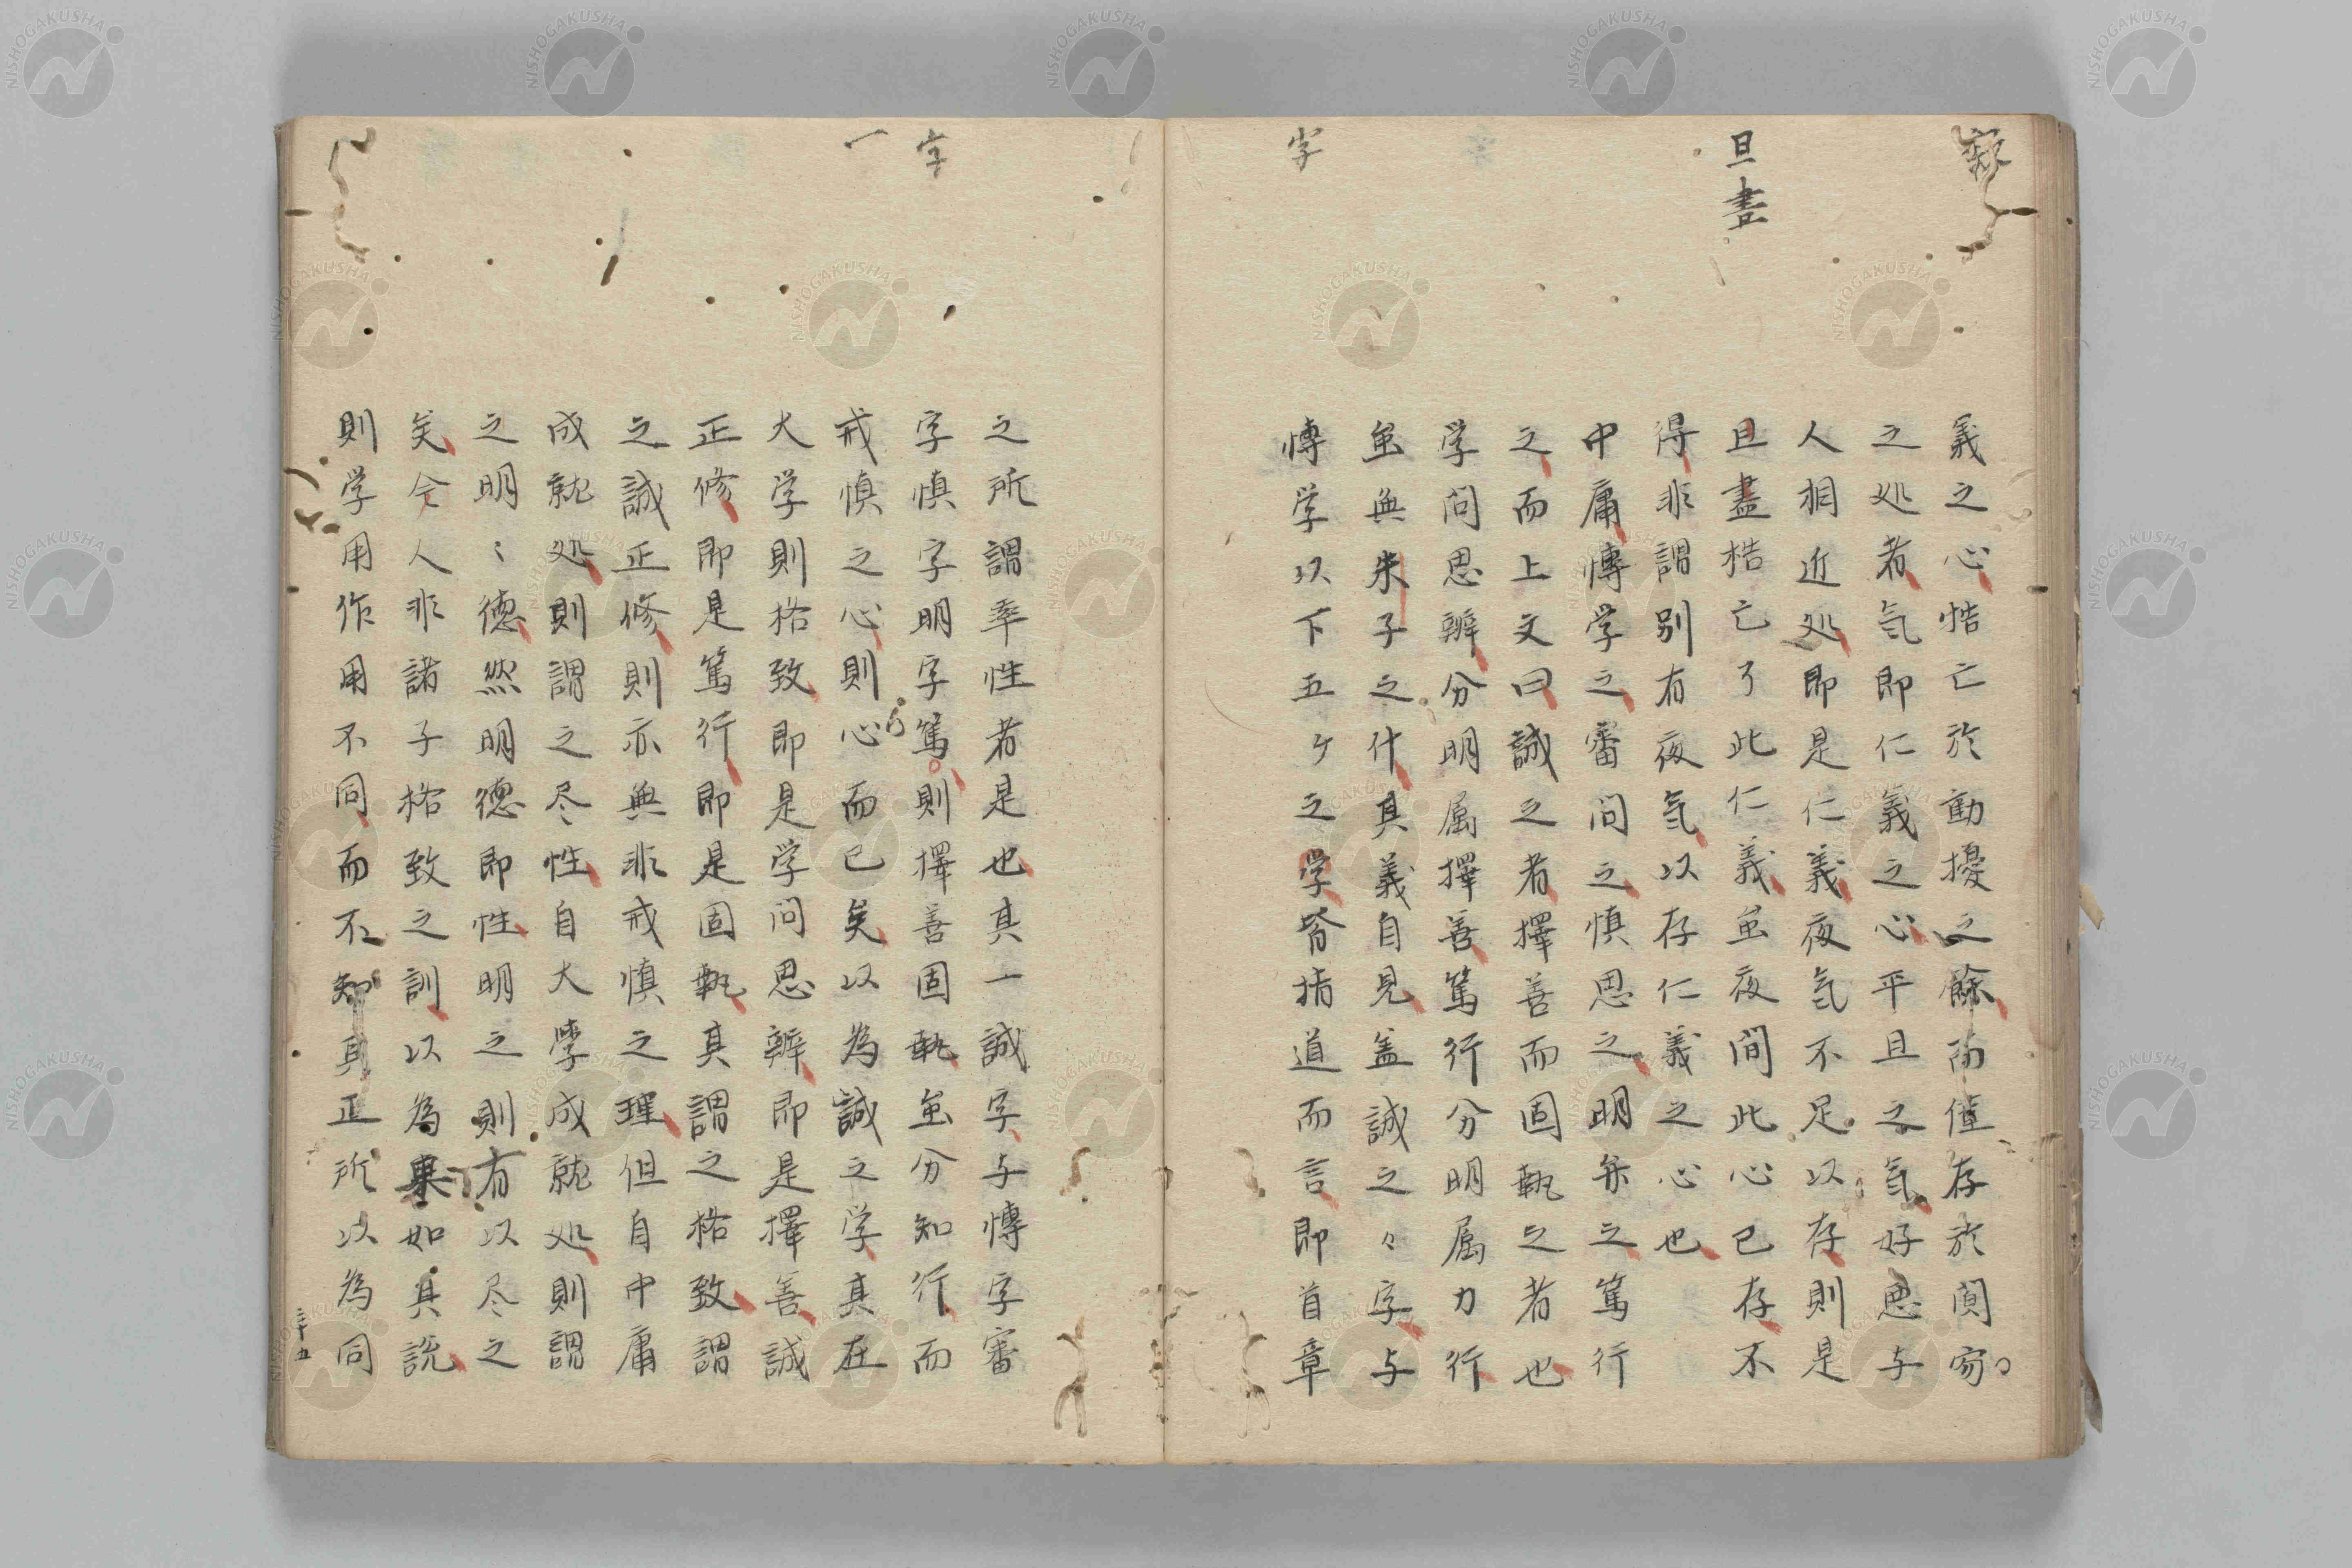 義之心牿亡於動擾之餘而僅存於間
之処者気即仁義之心平旦之気好悪与
人相近処即是仁義夜気不足以存則是
旦盡梏亡了此仁義虽夜間此心已存不
得非謂別有夜気以存仁義之心也
中庸慱学之審問之慎思之明弁之篤行
之而上文曰誠之者擇善而固執之者也
学問思辨分明属擇善篤行分明属力行
虽無朱子之什其義自見盖誠之々字与
慱学以下五ケ之学皆指道而言即首章
旦
晝
字
之所謂率性者是也其一誠字与慱字審
字慎字明字篤則擇善固執虽分知行而
戒慎之心則心而已矣以為誠之学其在
大学則格致即是学問思辨即是擇善誠
正修即是篤行即是固執其謂之格致謂
之誠正修則亦無非戒慎之理但自中庸
成就処則謂之尽性自大學成就処則謂
之明〻德然明德即性明之則有以尽之
矣今人非諸子格致之訓以為果如其説
則学用作用不同而不知其正所以為同
字
一
三十五
NISHOGAKUSHA